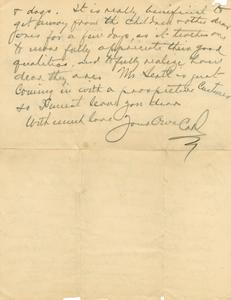 & days. It is really beneficial to
get away from the children & other dear
ones for a few days, as it teaches one
to more fully appreciate their good
qualities, and to fully realize how
dear they are. Mr. is just
coming in with a prospective customer
so I must leave you dear
With much love Yours